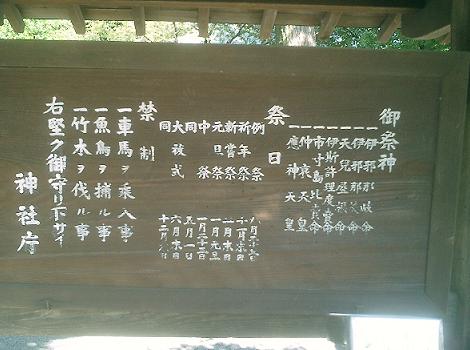 御祭神
一伊邪那岐命
一伊邪那美命
一天児屋根命
一伊斯許理度売命
一市寸島比売命
一仲哀天皇
一應神天皇
祭日
例祭
祈年祭
新嘗祭
元旦祭 一月元旦
中祭
同 五月一日
大祓式 六月末日
同
禁制
一車馬ヲ乗入事
一魚鳥ヲ捕ル事
一竹木ヲ伐ル事
右堅ク御守リ下サイ
神社庁